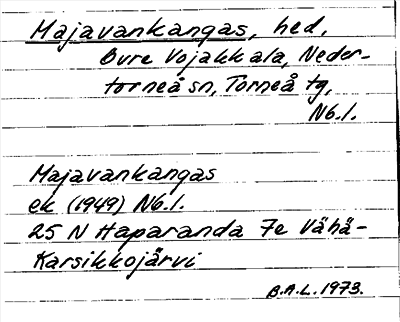 Majavankangas, hed,
Övre Vojakkala, Neder-
torneå sn, Torneå tg,
Nb.l.
Majavankangas
ek (1949) Nb.l.
25 N Haparanda 7e Vähä-
Karsikkojärvi
B.A.L. 1973.